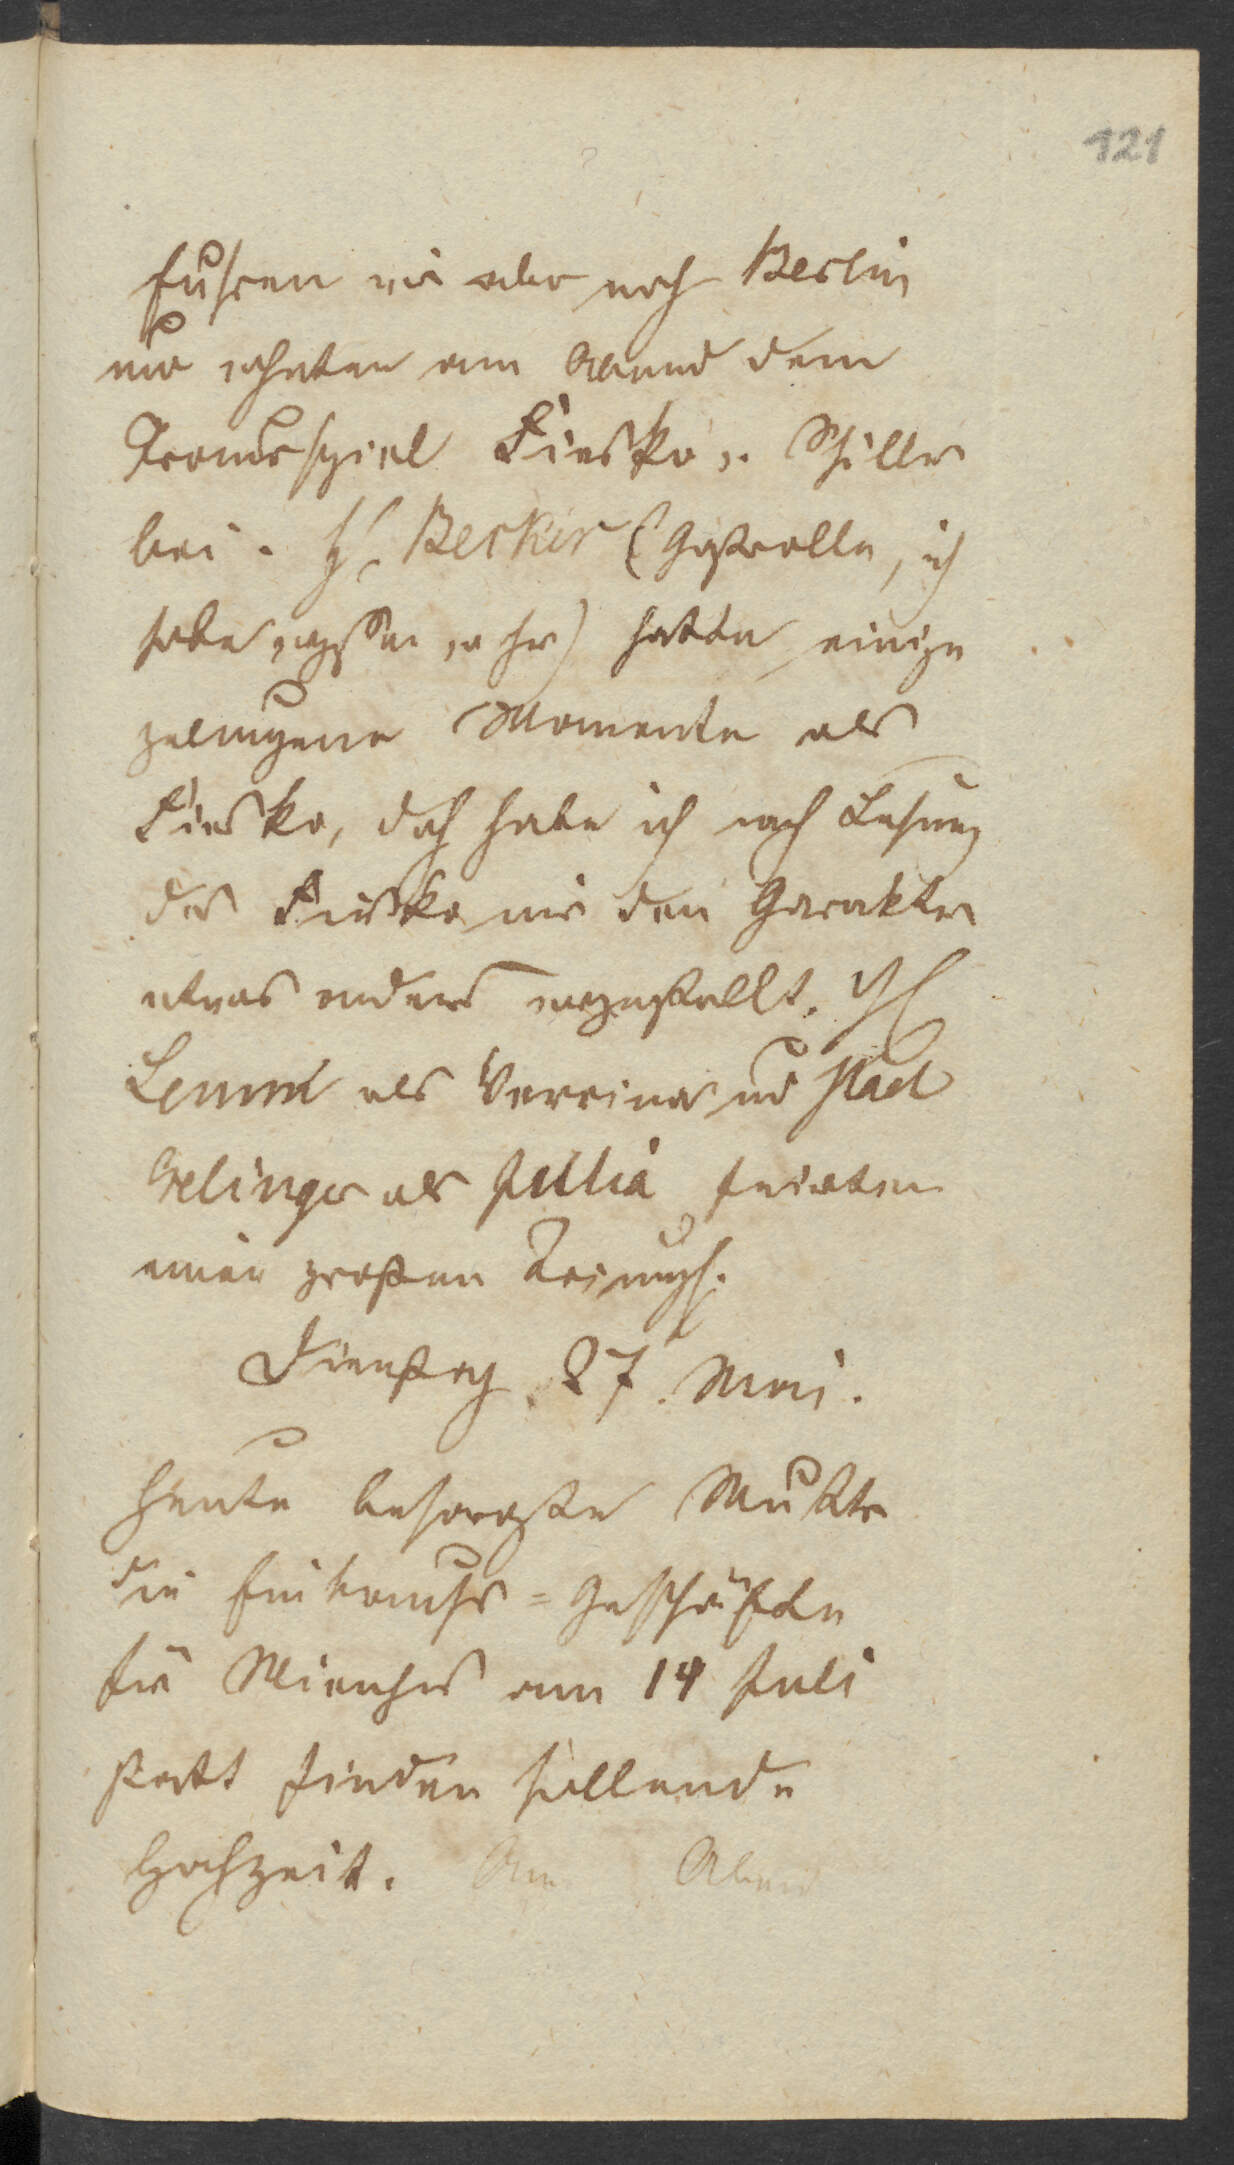 121
fuhren wir aber nach Berlin
und wohnten am Abend dem
Trauerspiel Fiesko v. Schiller
bei. H. Becker (Gastrolle, ich
habe) hatte einige
gelungene Momente als
Fiesko, doch habe ich nach Lesung
des Fiesko mir den Carakter
etwas anders vorgestellt. H
Lemm als Verrina und Mad
Crelinger als Jullia feierten
einen großen Triumph.
Dienstag 27. Mai.
Heute besorgte Mutter
die Einkaufs=Geschäfte
für Mienchens am 14 Juli
statt finden sollende
Hochzeit. Am Abend